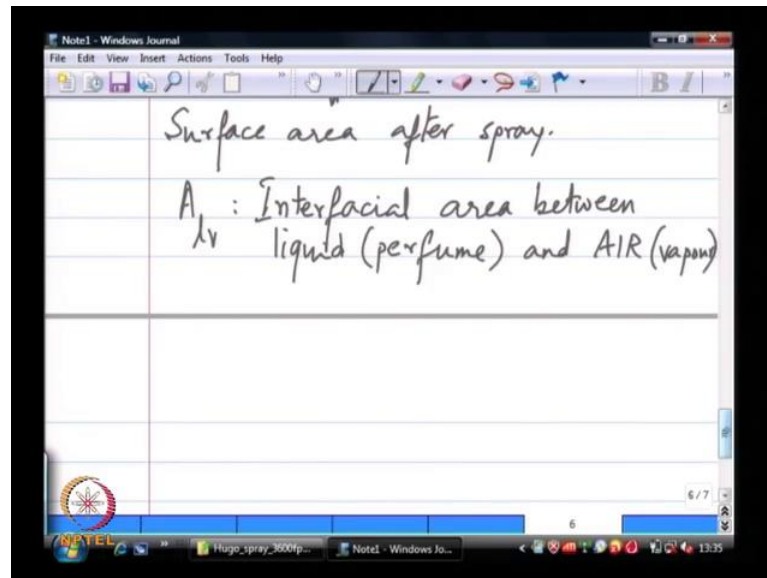 Note1 - Windows Journal
File Edit View Insert Actions Tools Help
B I
Surface area after spray.
A lv : Interfacial area between
liquid (perfume) and AIR (vapour)
6/7
6
NPTEL
Hugo_spray_3600fp... Note1 - Windows Jo... 13:35